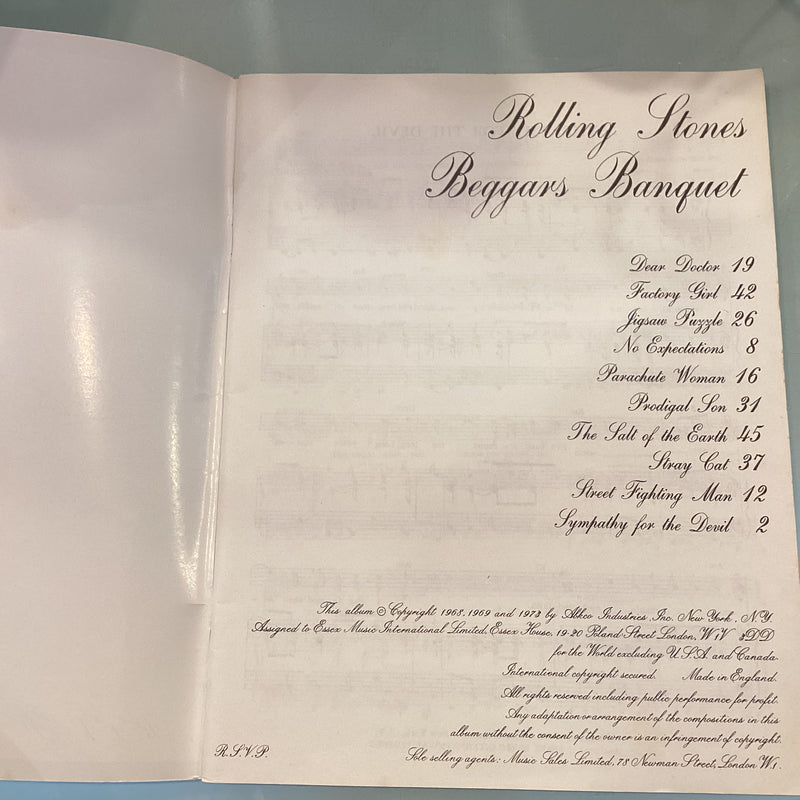 Rolling Stones
Beggars Banquet
Dear Doctor 19
Factory Girl 42
Jigsaw Puzzle 26
No Expectations 8
Parachute Woman 16
Prodigal Son 31
The Salt of the Earth 45
Stray Cat 37
Street Fighting Man 12
Sympathy for the Devil 2
This album © Copyright 1968, 1969 and 1973 by Abkco Industries, Inc. New York, N.Y.
Assigned to Essex Music International Limited, Essex House, 19-20 Poland Street London, W1V 3DD
for the World excluding U.S.A. and Canada.
International copyright secured. Made in England.
All rights reserved including public performance for profit.
Any adaptation or arrangement of the compositions in this
album without the consent of the owner is an infringement of copyright.
R.S.V.P. Sole selling agents: Music Sales Limited, 78 Newman Street, London W1.